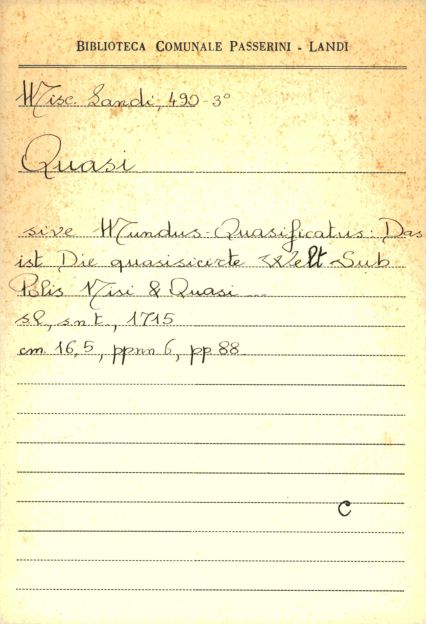 BIBLIOTECA COMUNALE PASSERINI - LANDI
Misc. Landi, 490-3°
Quasi
sive Mundus-Quasificatus: Das
ist Die quasisicirte Welt Sub
Polis Nisi & Quasi...
s.l., s.n.t., 1715
cm 16,5, ppnn 6, pp 88.
C